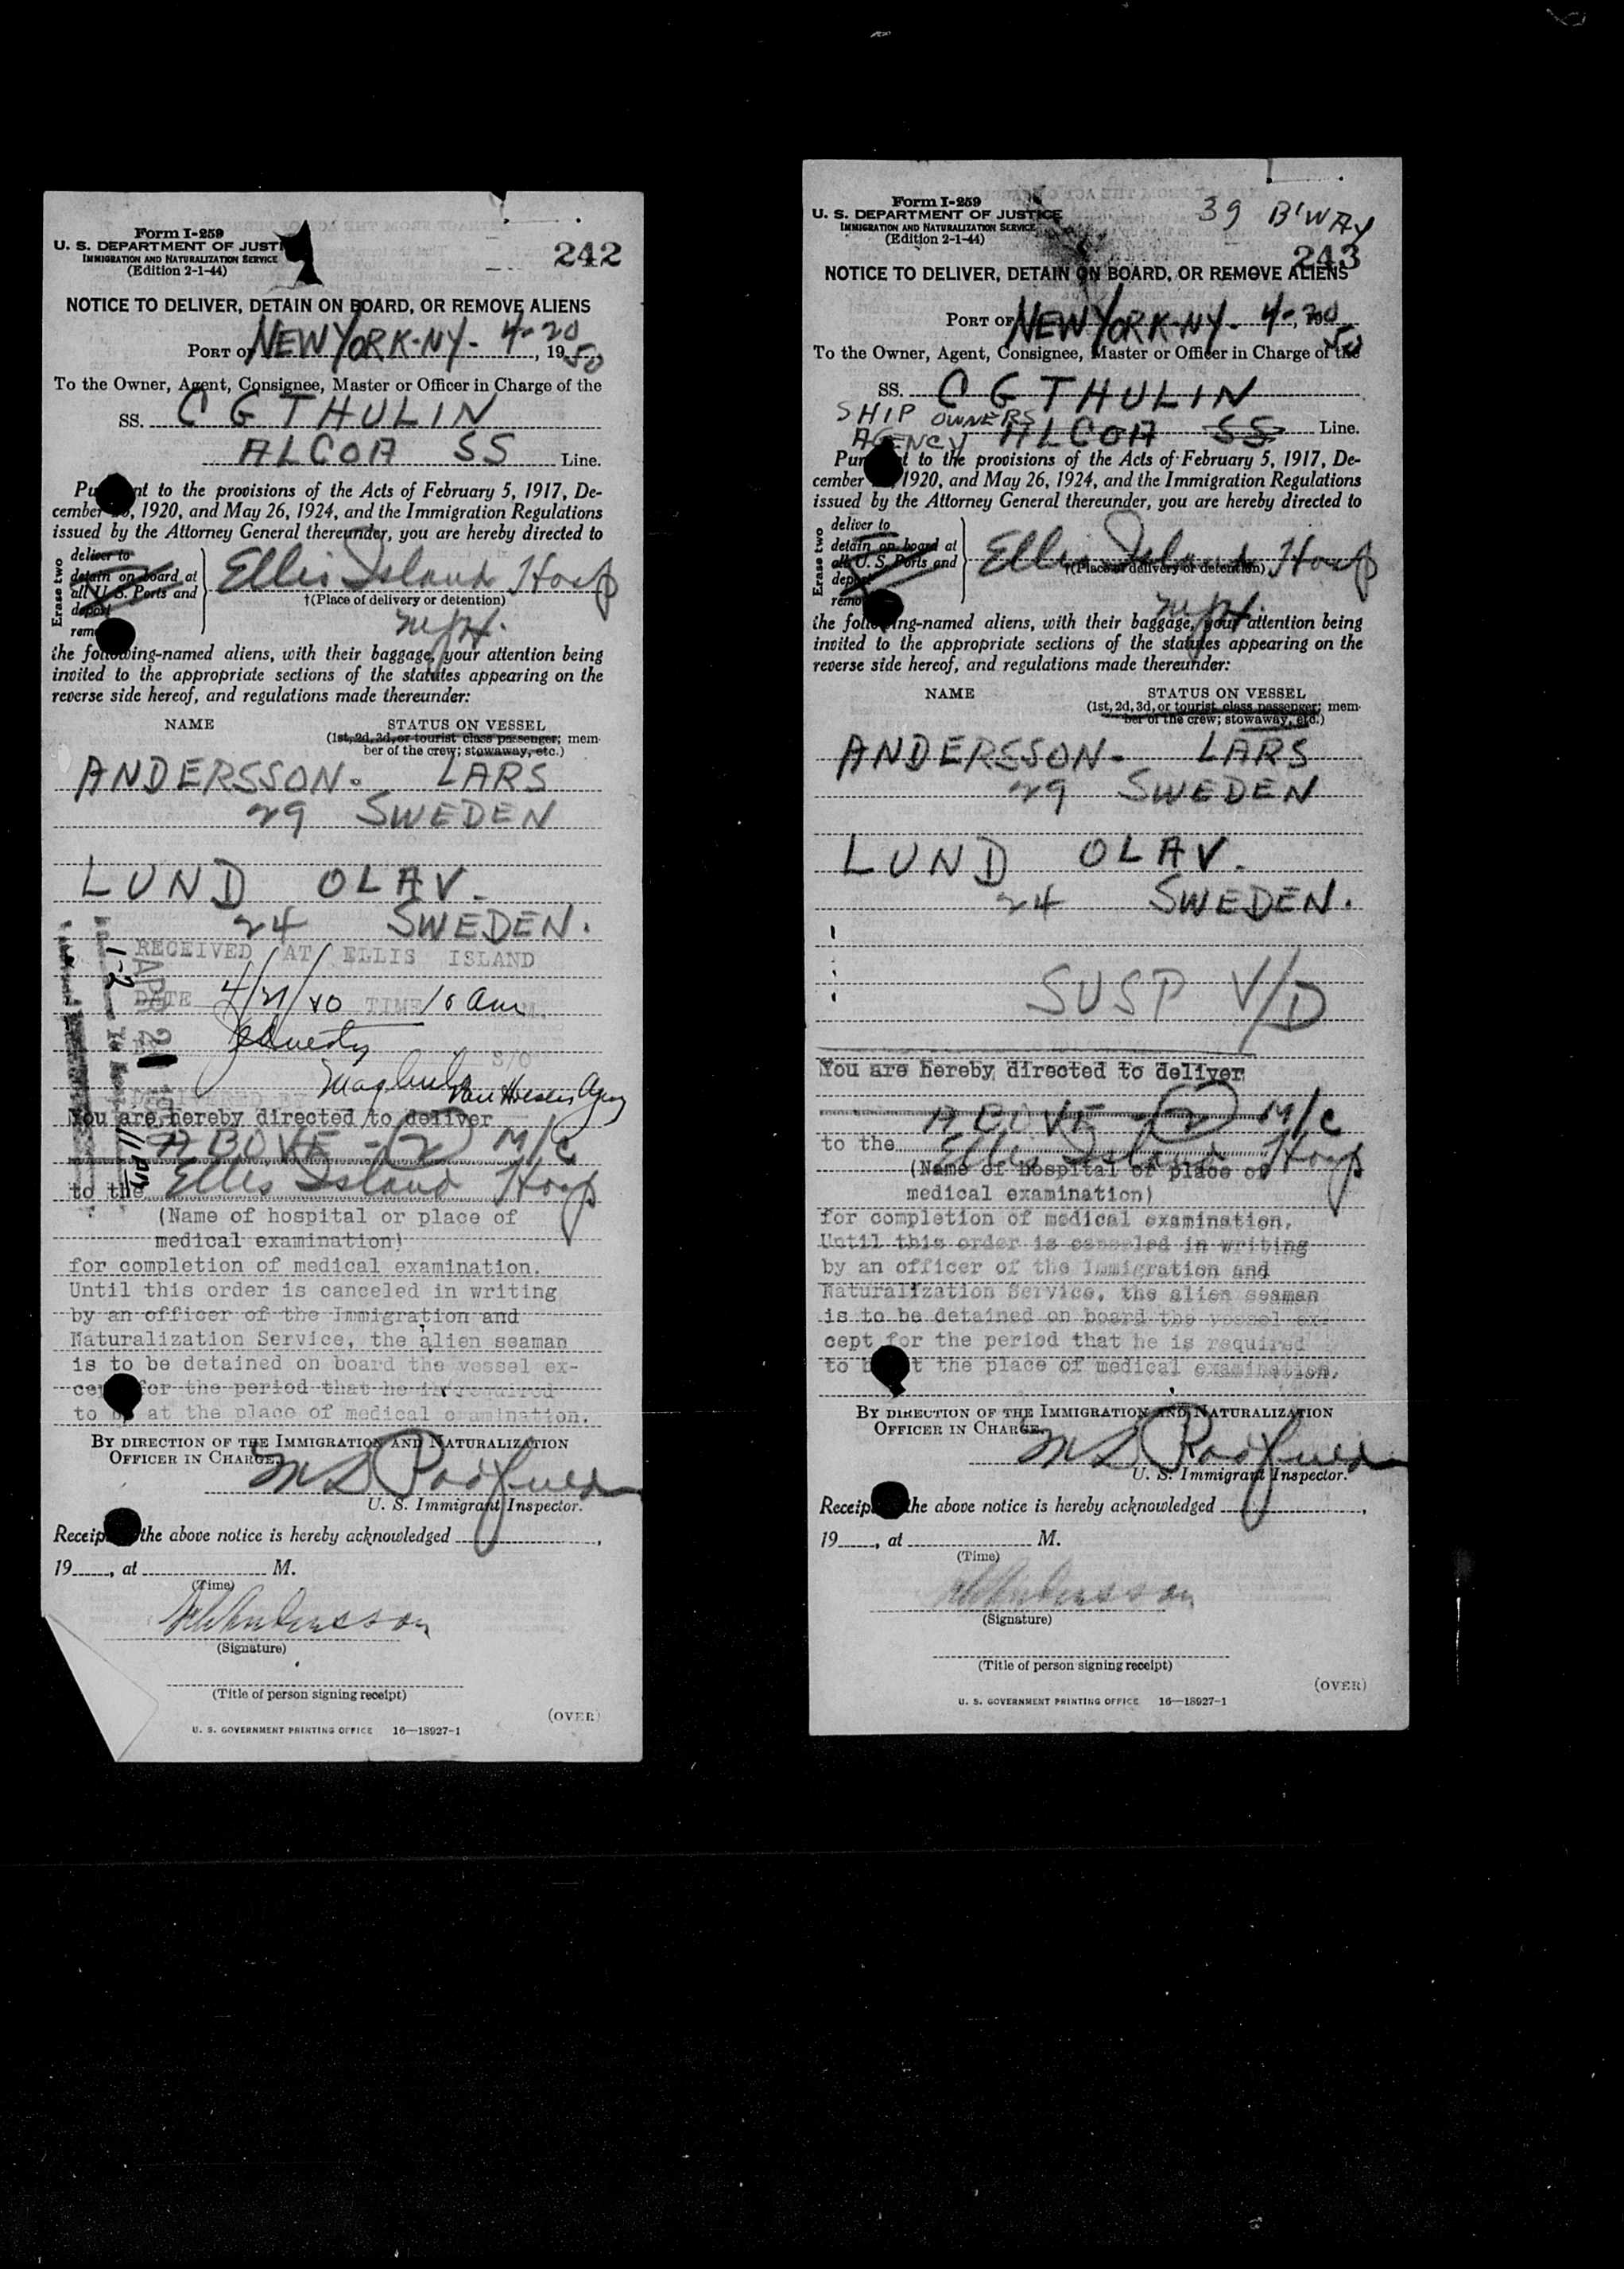 Form I-259
U. S. DEPARTMENT OF JUSTI
IMMIGRATION AND NATURALIZATION SERVICE
(Edition 2-1-44)
242
NOTICE TO DELIVER, DETAIN ON BOARD, OR REMOVE ALIENS
PORT OF NEW YORK-NY- 4-20, 1950
To the Owner, Agent, Consignee, Master or Officer in Charge of the
SS. C G THULIN
ALCOA SS Line.
Pu nt to the provisions of the Acts of February 5, 1917, De-
cember , 1920, and May 26, 1924, and the Immigration Regulations
issued by the Attorney General thereunder, you are hereby directed to
Erase two
deliver to
detain on board at
all U. S. Ports and
deport
rem
Ellis Island Hosp
†(Place of delivery or detention)
the following-named aliens, with their baggage, your attention being
invited to the appropriate sections of the statutes appearing on the
reverse side hereof, and regulations made thereunder:
NAME STATUS ON VESSEL
(1st, 2d, 3d, or tourist class passenger; mem-
ber of the crew; stowaway, etc.)
ANDERSSON. LARS
29 SWEDEN
LUND OLAV.
24 SWEDEN.
RECEIVED AT ELLIS ISLAND
DATE 4/21/50 TIME 10 am M.
APR 21
S/O
You are hereby directed to deliver
ABOVE - (2) M/C
to the Ellis Island Hosp
(Name of hospital or place of
medical examination)
for completion of medical examination.
Until this order is canceled in writing
by an officer of the Immigration and
Naturalization Service, the alien seaman
is to be detained on board the vessel ex-
cept for the period that he is required
to be at the place of medical examination.
BY DIRECTION OF THE IMMIGRATION AND NATURALIZATION
OFFICER IN CHARGE.
U. S. Immigrant Inspector.
Receip the above notice is hereby acknowledged ,
19 , at M.
(Time)
Andersson
(Signature)
(Title of person signing receipt)
(OVER)
U. S. GOVERNMENT PRINTING OFFICE 16—18927-1
Form I-259
U. S. DEPARTMENT OF JUSTICE
IMMIGRATION AND NATURALIZATION SERVICE
(Edition 2-1-44)
39 B'WAY
243
NOTICE TO DELIVER, DETAIN ON BOARD, OR REMOVE ALIENS
PORT OF NEW YORK-NY- 4-20, 1950
To the Owner, Agent, Consignee, Master or Officer in Charge of the
SS. C G THULIN
SHIP OWNERS
AGENCY ALCOA SS Line.
Pur t to the provisions of the Acts of February 5, 1917, De-
cember 1920, and May 26, 1924, and the Immigration Regulations
issued by the Attorney General thereunder, you are hereby directed to
Erase two
deliver to
detain on board at
all U. S. Ports and
deport
remo
Ellis Island Hosp
†(Place of delivery or detention)
the following-named aliens, with their baggage, your attention being
invited to the appropriate sections of the statutes appearing on the
reverse side hereof, and regulations made thereunder:
NAME STATUS ON VESSEL
(1st, 2d, 3d, or tourist class passenger; mem-
ber of the crew; stowaway, etc.)
ANDERSSON- LARS
29 SWEDEN
LUND OLAV.
24 SWEDEN.
SUSP V/D
You are hereby directed to deliver
ABOVE - (2) M/C
to the Ellis Island Hosp
(Name of hospital or place of
medical examination)
for completion of medical examination.
Until this order is canceled in writing
by an officer of the Immigration and
Naturalization Service, the alien seaman
is to be detained on board the vessel ex-
cept for the period that he is required
to b t the place of medical examination.
BY DIRECTION OF THE IMMIGRATION AND NATURALIZATION
OFFICER IN CHARGE.
U. S. Immigrant Inspector.
Receip the above notice is hereby acknowledged ,
19 , at M.
(Time)
Andersson
(Signature)
(Title of person signing receipt)
(OVER)
U. S. GOVERNMENT PRINTING OFFICE 16—18927-1